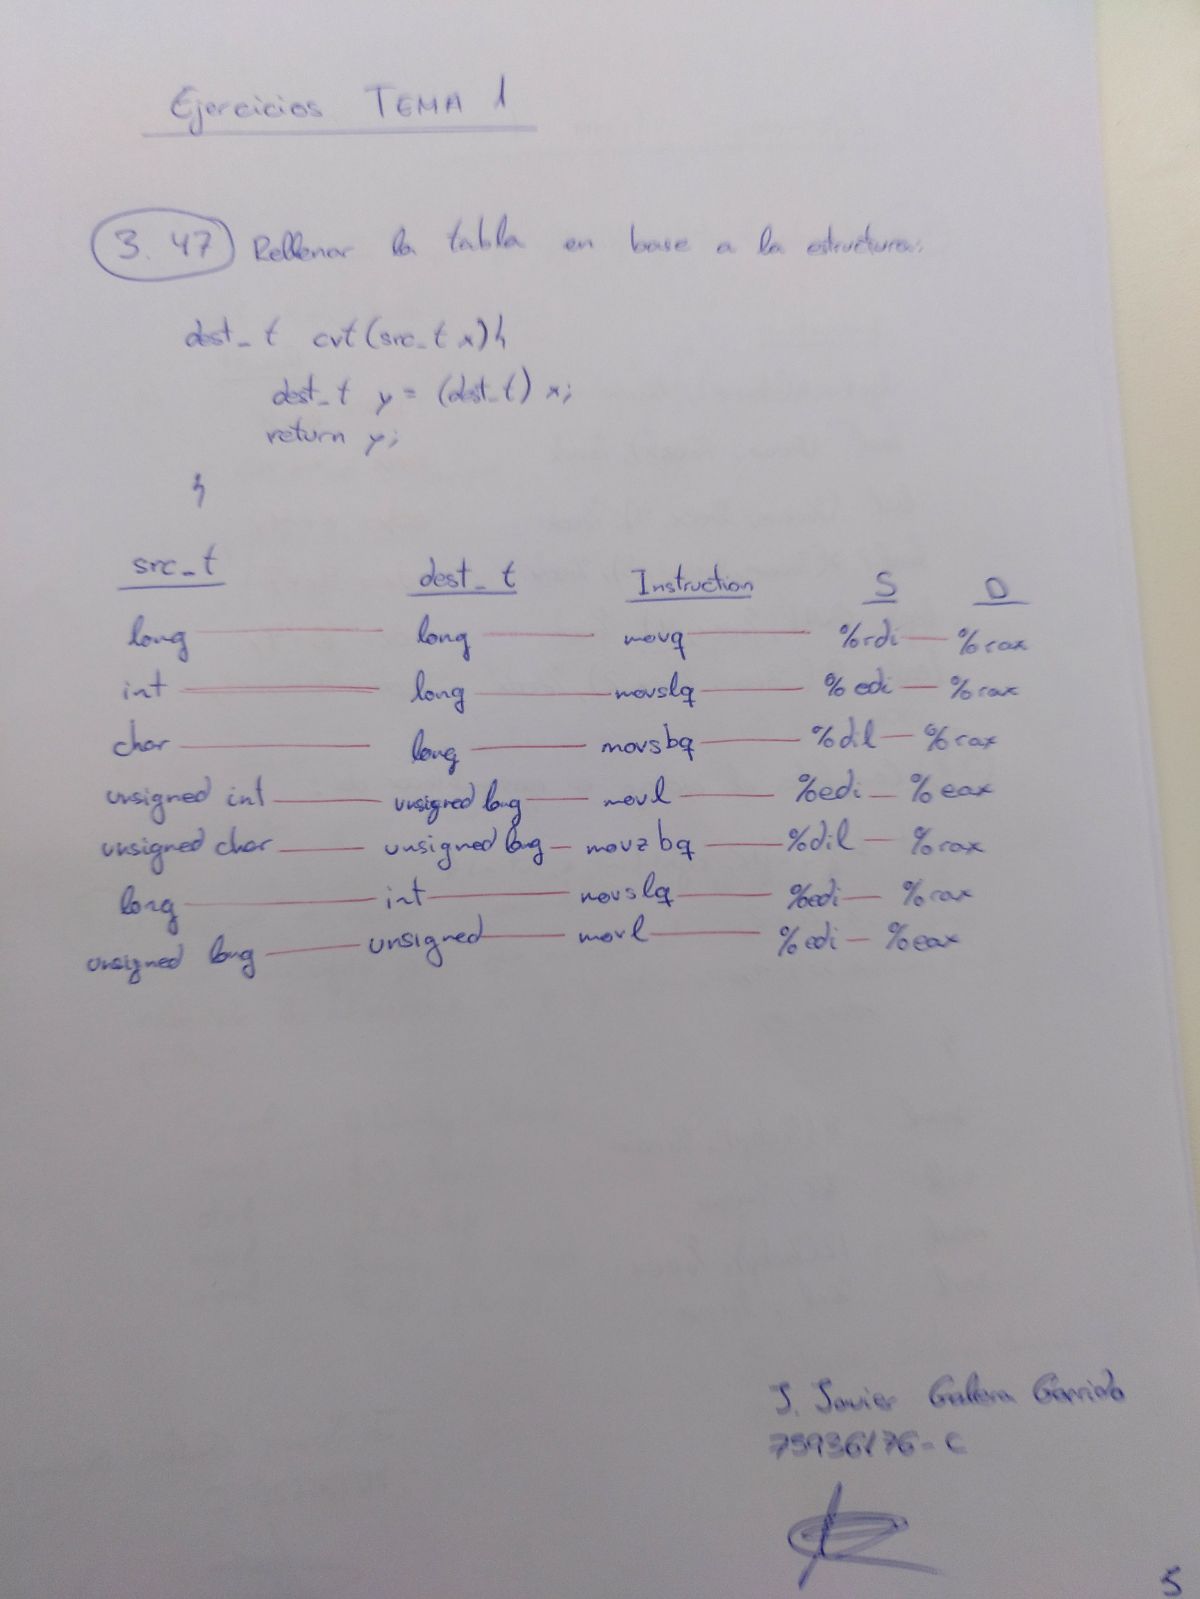 Ejercicios TEMA 1
3.47 Rellenar la tabla en base a la estructura:
dest_t cvt(src_t x){
dest_t y = (dest_t) x;
return y;
}
src_t dest_t Instruction S D
long long movq %rdi %rax
int long movslq %edi %rax
char long movsbq %dil %rax
unsigned int unsigned long movl %edi %eax
unsigned char unsigned long movzbq %dil %rax
long int movslq %edi %rax
unsigned long unsigned movl %edi %eax
J. Javier Galera Garrido
75936176-C
5